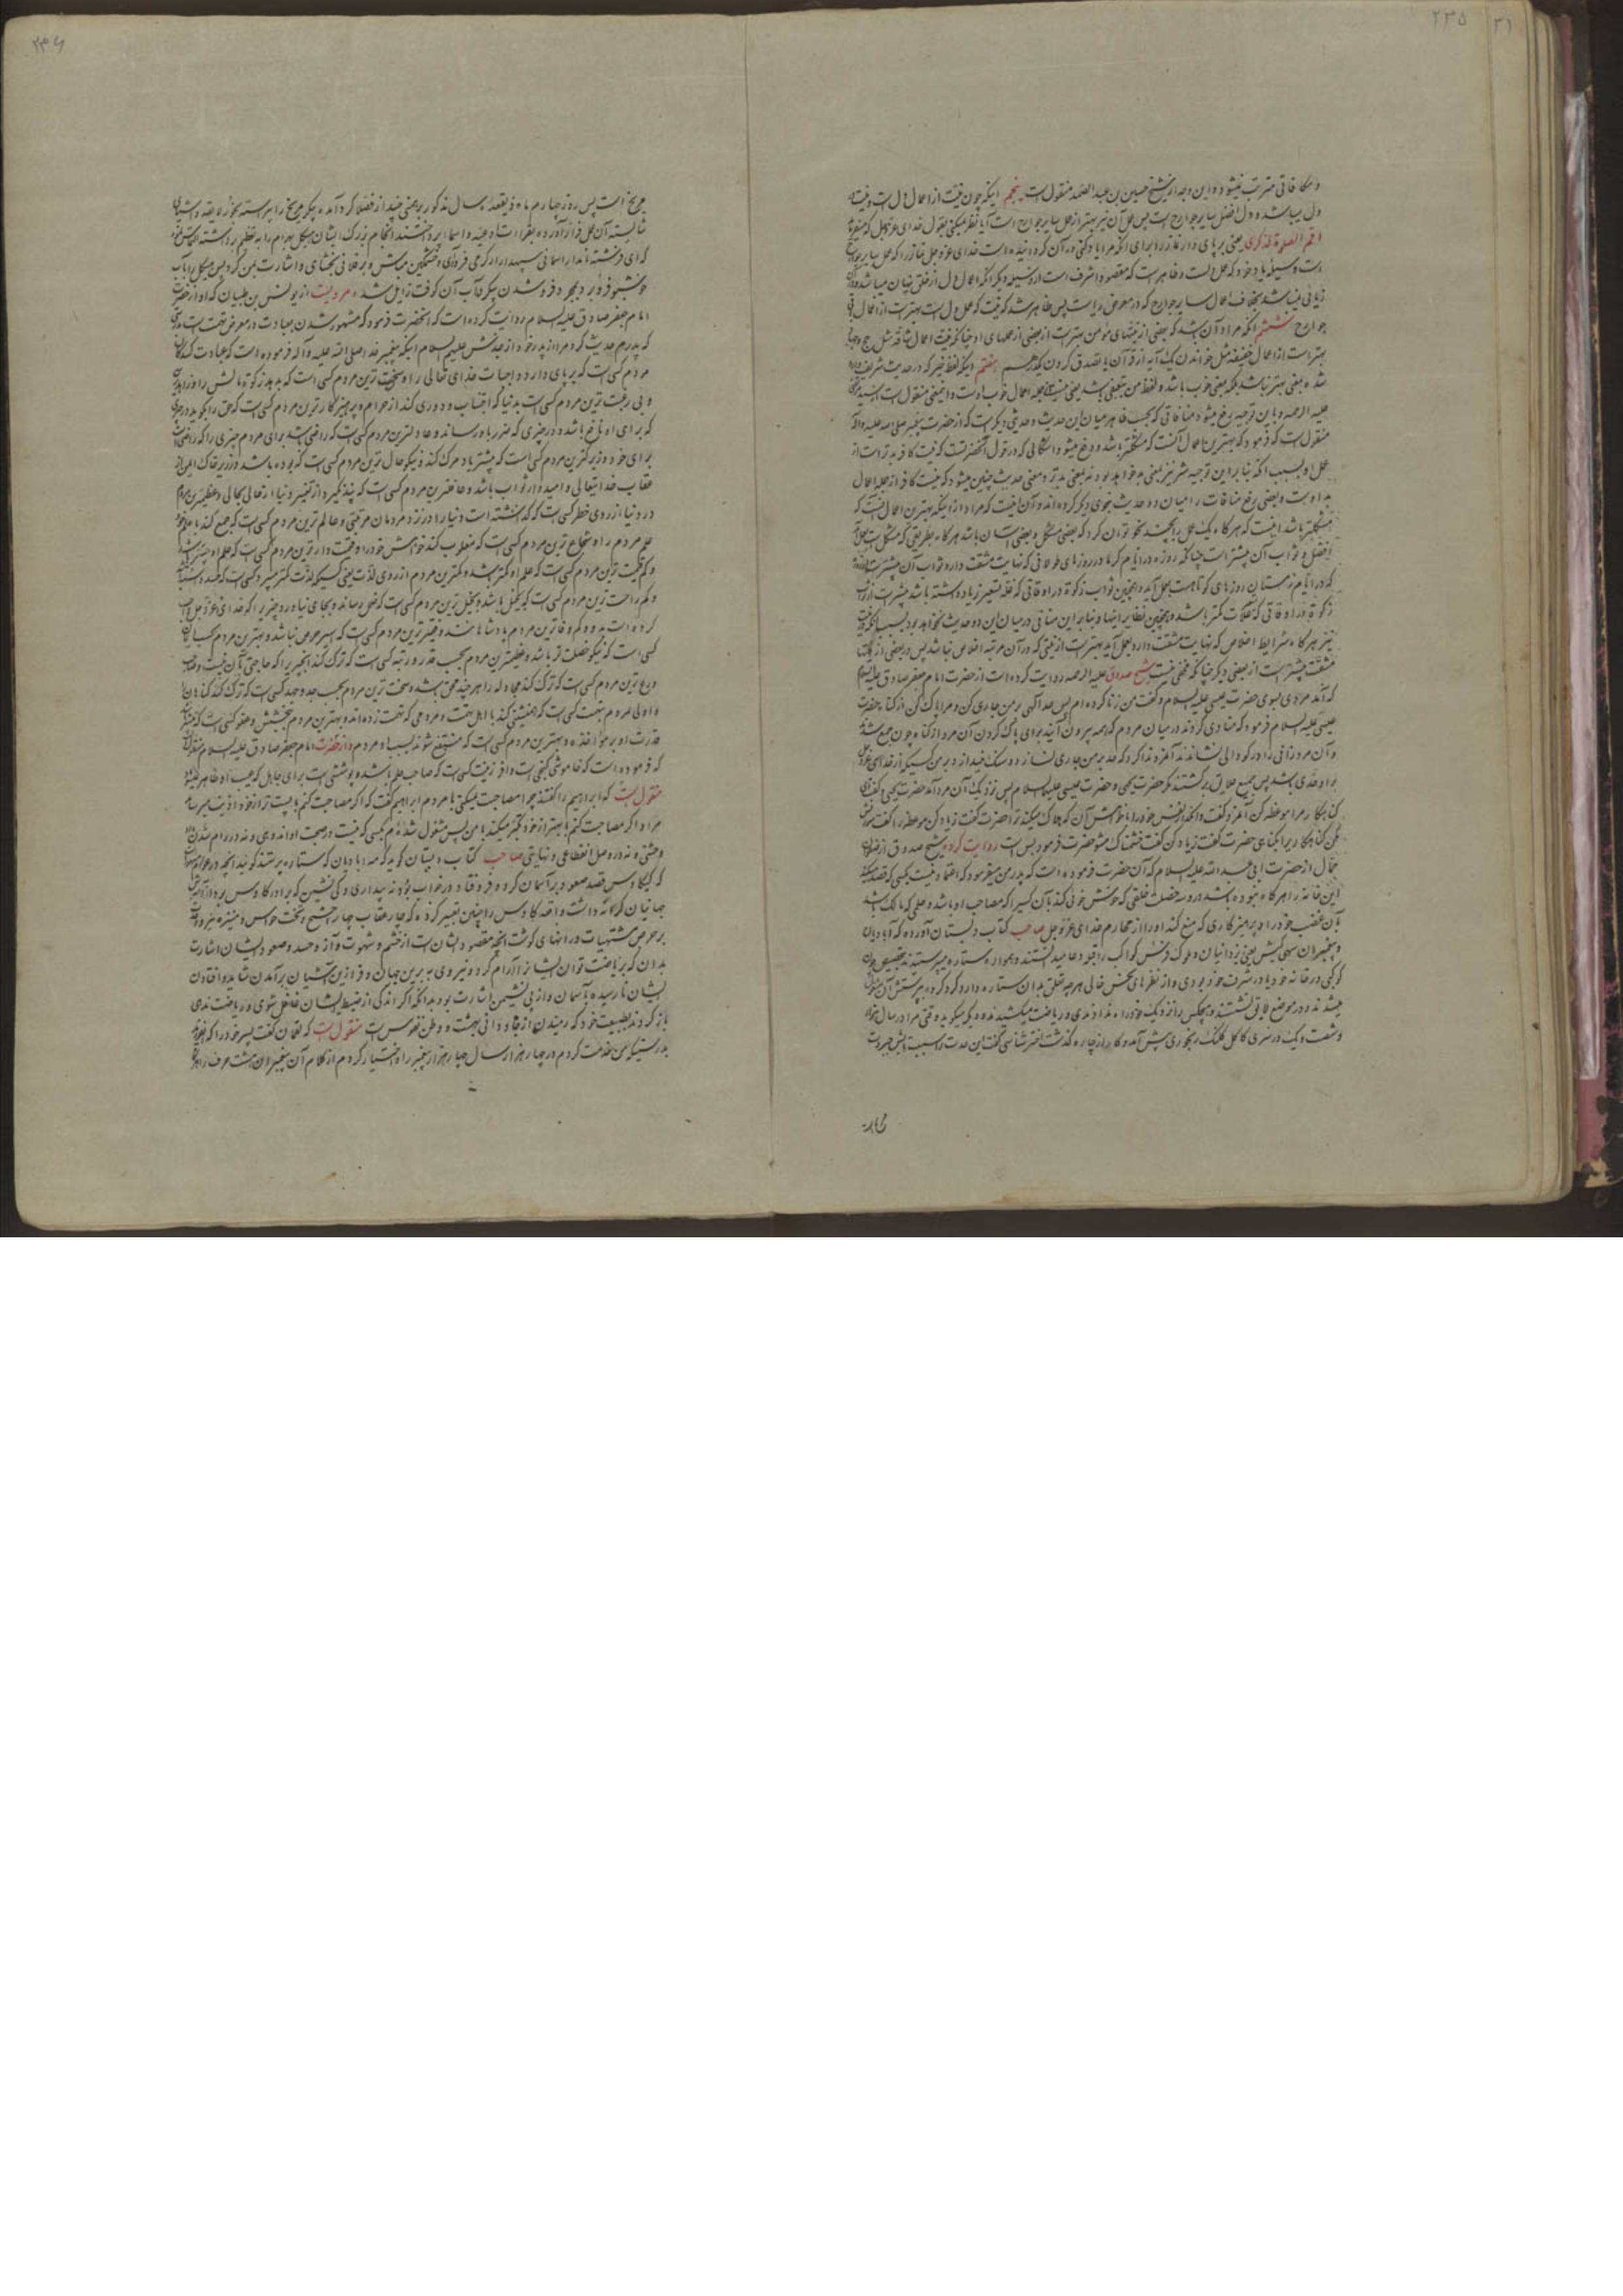 ۲۳۵
۳۱
و مکافاتی مترتب نمیشود و این وجه از شیخ حسین بن عبد الصمد منقول است پنجم اینکه چون نیت از اعمال دل است و نیت
دل میباشد و دل افضل سایر جوارح است پس عمل آن نیز بهتر از عمل سایر جوارح است آیا نظر میکنی بقول خدای عز و جل که میفرماید
اقم الصلوة لذکری یعنی بر پای دار نماز را برای آنکه مرا یاد کنی و در آن گردانیده است خدای عز و جل نماز را که عمل سایر جوارح
است وسیله یاد خود که عمل دلست و ظاهر است که مقصود اشرف است از وسیله و دیگر آنکه اعمال دل از خلق پنهان میباشد
ریائی نمیباشد بخلاف اعمال سایر جوارح که در معرض ریا است پس ظاهر شد که نیت که عمل دل است بهتر است از اعمال باقی
جوارح ششم آنکه مراد آن باشد که بعضی از نیتهای مؤمن بهتر است از بعضی از عملهای او چنانکه نیت اعمال شاقه مثل حج و جهاد
بهتر است از اعمال خفیفه مثل خواندن یک آیه از قرآن یا تصدق کردن یکدرهم هفتم اینکه لفظ خیر که در حدیث شریف وارد
شده بمعنی بهتر نباشد بلکه بمعنی خوب باشد و لفظ من تبعیضی باشد یعنی نیت مؤمن از جمله اعمال خوب اوست و اینمعنی منقول است از سید مرتضی
علیه الرحمه و باین توجیه رفع میشود منافاتی که بحسب ظاهر میان این حدیث و حدیثی دیگر است که از حضرت پیغمبر صلی الله علیه و آله
منقول است که فرمود که بهترین اعمال آنست که مشکلتر باشد و رفع میشود اشکالی که در قول آنحضرتست که نیت کافر بدتر است از
عمل او بسبب آنکه بنا براین توجیه شر نیز بمعنی بد خواهد بود نه بمعنی بدتر و معنی حدیث چنین میشود که نیت کافر از جمله اعمال
بد اوست و بعضی رفع منافات را میان دو حدیث بنحوی دیگر کرده‌اند و آن اینست که مراد از اینکه بهترین اعمال آنست که
مشکلتر باشد اینست که هرگاه یک عمل را بچند نحو توان کرد که بعضی مشکل و بعضی آسان باشد هرگاه بطریقی که مشکل است بعمل آید
افضل و ثواب آن بیشتر است چنانکه روزه در ایام گرما و در روزهای طولانی که نهایت مشقت دارد ثواب آن بیشتر است از روزه
که در ایام زمستان و روزهای کوتاهست بعمل آید و همچنین ثواب زکوة در اوقاتی که غله تسعیر زیاد داشته باشد بیشتر است از ثواب
زکوة در اوقاتی که غلات کمتر باشد و همچنین نظایر اینها و بنا براین منافاتی در میان این دو حدیث نخواهد بود بسبب آنکه نیت
نیز هرگاه با شرایط اخلاص که نهایت مشقت دارد بعمل آید بهتر است از نیتی که در آن مرتبه اخلاص نباشد پس در بعضی از نیتها
مشقت بیشتر است از بعضی دیگر چنانکه مخفی نیست شیخ صدوق علیه الرحمه روایت کرده است از حضرت امام جعفر صادق علیه السلام
که آمد مردی بسوی حضرت عیسی علیه السلام و گفت من زنا کرده‌ام پس حد الهی بر من جاری کن و مرا پاک کن از گناه حضرت
عیسی علیه السلام فرمود که منادی کردند در میان مردم که همه بیرون آیند برای پاک کردن آن مرد از گناه چون جمع شدند
و آن مرد زانی را در گودالی نشاندند آنمرد ندا کرد که حد بر من جاری نسازد و سنگ نیندازد بر من کسیکه از خدای عز و جل
بر او حدی باشد پس جمیع خلایق برگشتند مگر حضرت یحیی و حضرت عیسی علیهما السلام پس نزدیک آن مرد آمد حضرت یحیی و گفت ای
گناهکار مرا موعظه کن آنمرد گفت وامگذار نفس خود را با خواهش آن که هلاک میکند ترا حضرت گفت زیاد کن موعظه را گفت سرزنش
مکن گناهکار را بر گناهی حضرت گفت زیاد کن گفت خشمناک مشو حضرت فرمود بس است روایت کرد شیخ صدوق از صفوان
جمال از حضرت ابی عبد الله علیه السلام که آن حضرت فرموده است که پدر من میفرمود که اعتنا و نیست بکسی که قصد میکند
این خانه را هرگاه نبوده باشد در او سه خصلت خلقی که خوش خوئی کند بآن کسیرا که مصاحب او باشد و حلمی که مالک باشد
بآن غضب خود را و پرهیزکاری که منع کند او را از محارم خدای عز و جل صاحب کتاب دبستان آورده که آبادیان
و پیغمبران سپهی کیش یعنی یزدانیان و ملوک فرس کواکب را قبله دعا میدانستند و همواره ستاره میپرستیدند بتخصیص چون
کوکبی در خانه خود یا در شرف خود بودی و از نظرهای نحس خالی هرچه تعلق بدان ستاره دارد گرد کرده بپرستش آن مشغول
میشدند و در موضع لایق نشستند و هیچکس را نزدیک خود راه ندادندی و ریاضت میکشیدند وه گو میگوید وقتی مرا در سال هزار
و شصت و یک در سری کاکل کلنگ رنجوری پیش آمد و کار از چاره گذشت اختر شناسی گفت این حدت را سبب تابش جبروت
مریخ
۲۳۶
مریخ است پس روز چهارم ماه ذیقعده سال مذکور برهمنی چند از فضلا گرد آمده پیکر مریخ را پیراسته بخور لایقه و اشیای
شایسته آن عمل فراز آورده بقراءت ادعیه و اسماء پرداختند انجام بزرگ ایشان پیکر بهرام را به تعظیم برداشته التماس نمود
که ای فرشته نامدار اسمانی سپهدار از گرمی فرودآی و خشمگین مباش و بر فلانی ببخشای و اشارت بمن کرد پس پیکر را بآب
خوشبو فرو برد بمجرد فرو شدن پیکر بآب آن کوفت زایل شد مرویست از یونس بن ظبیان که او از حضرت
امام جعفر صادق علیه السلام روایت کرده است که آنحضرت فرمود که مشهور شدن بعبادت در معرض تهمت است بدرستی
که پدرم حدیث کرد مرا از پدر خود از جدش علیهم السلام اینکه پیغمبر خدا صلی الله علیه و آله فرموده است که عبادت کننده‌ترین
مردم کسی است که بر پای دارد واجبات خدای تعالی را و سخی‌ترین مردم کسی است که بدهد زکوة مالش را و زاهدترین
و بی رغبت ترین مردم کسی است بدنیا که اجتناب و دوری کند از حرام و پرهیزکارترین مردم کسی است که حق را بگوید در چیزی
که برای او نافع باشد و در چیزی که ضرر باو رساند و عادلترین مردم کسی است که راضی باشد برای مردم چیزی را که راضی باشد
برای خود و زیرکترین مردم کسی است که بیشتر یاد مرگ کند و نیکو حال ترین مردم کسی است که بوده باشد در زیر خاک ایمن از
عقاب خدایتعالی و امیدوار ثواب باشد و غافلترین مردم کسی است که پند نگیرد از تغییر دنیا از حالی بحالی و عظیمترین مردم
در دنیا از روی خطر کسی است که نگذاشته است دنیا را در نزد مردمان مرتبتی و عالم ترین مردم کسی است که جمع کند با علم خود
علم مردم را و شجاع ترین مردم کسی است که مغلوب کند خواهش خود را و قیمت دارترین مردم کسی است که علم او بیشتر باشد
و کم قیمت ترین مردم کسی است که علم او کمتر باشد و کمترین مردم از روی لذت یعنی کسیکه لذت کمتر میبرد کسی است که حسد داشته باشد
و کم راحت ترین مردم کسی است که بخیل باشد و بخیل ترین مردم کسی است که بخل رساند و بجای نیاورد چیزیرا که خدای عز و جل واجب
کرده است بر او و کم وفاترین مردم پادشاهانند و فقیرترین مردم کسی است که اسیر حرص نباشد و بهترین مردم بحسب ایمان
کسی است که نیکو خصلت تر باشد و عظیمترین مردم بحسب قدر و رتبه کسی است که ترک کند چیزیرا که حاجتی بآن نیست و صاحب
ورع ترین مردم کسی است که ترک کند مجادله را هرچند محق باشد و سخت ترین مردم بحسب جد و جهد کسی است که ترک کند گناهان را
و اولی مردم بتهمت کسی است که همنشینی کند با اهل تهمت و مردمی که تهمت زده‌اند و بهترین مردم ببخشش و عفو کسی است که بیشتر باشد
قدرت او بر مؤاخذه و بهترین مردم کسی است که منتفع شوند بسبب او مردم و از حضرت امام جعفر صادق علیه السلام منقول است
که فرموده است که خاموشی گنجی است وافر و زینت کسی است که صاحب حلم باشد و پوششی است برای جاهل که عیب او ظاهر نمیشود
منقول است که ابراهیم را گفتند چرا مصاحبت نمیکنی با مردم ابراهیم گفت که اگر مصاحبت کنم با پست تر از خود اذیت میرساند
مرا و اگر مصاحبت کنم با بهتر از خود تکبر میکند با من پس مشغول شده‌ام بکسی که نیست در صحبت او اندوهی و نه در دوام شدن
وحشتی و نه در وصل انقطاعی و نهایتی صاحب کتاب دبستان گوید که مه آبادیان که ستاره پرستند گویند آنچه در عوام مشهور است
که کیکاوس قصد صعود بر آسمان کرده فرو افتاد در خواب بود نه بیداری و کی نشین که برادر کاوس بود و از آمیزش
جهانیان کرانه داشت واقعه کاوس را چنین تعبیر کرد که چهار عقاب چهار طبع و تخت حواس و نیزه نیرو
بر حرص مشتهیات و رانهای گوشت آنچه مقصود ایشان است از خشم و شهوت و آز و حسد و صعود ایشان اشارت
بدان که بریاضت توان ایشانرا رام کرد و نیروی به برین جهان و فرازین آشیان بر آمدن شاید و افتادن
ایشان نا رسیده بآسمان و از پی نشیمن اشارت بود بدانکه اگر اندکی از ضبط ایشان غافل شوی و ریاضت ندهی
باز گردند بطبیعت خود که رمیدن از جای جاودانی بهشت و وطن نفوس است منقول است که لقمان گفت بپسر خود را که بنویسد
بدرستیکه من خدمت کردم در چهار هزار سال چهار هزار پیغمبر را و اختیار کردم از کلام آن پیغمبران هشت حرف را